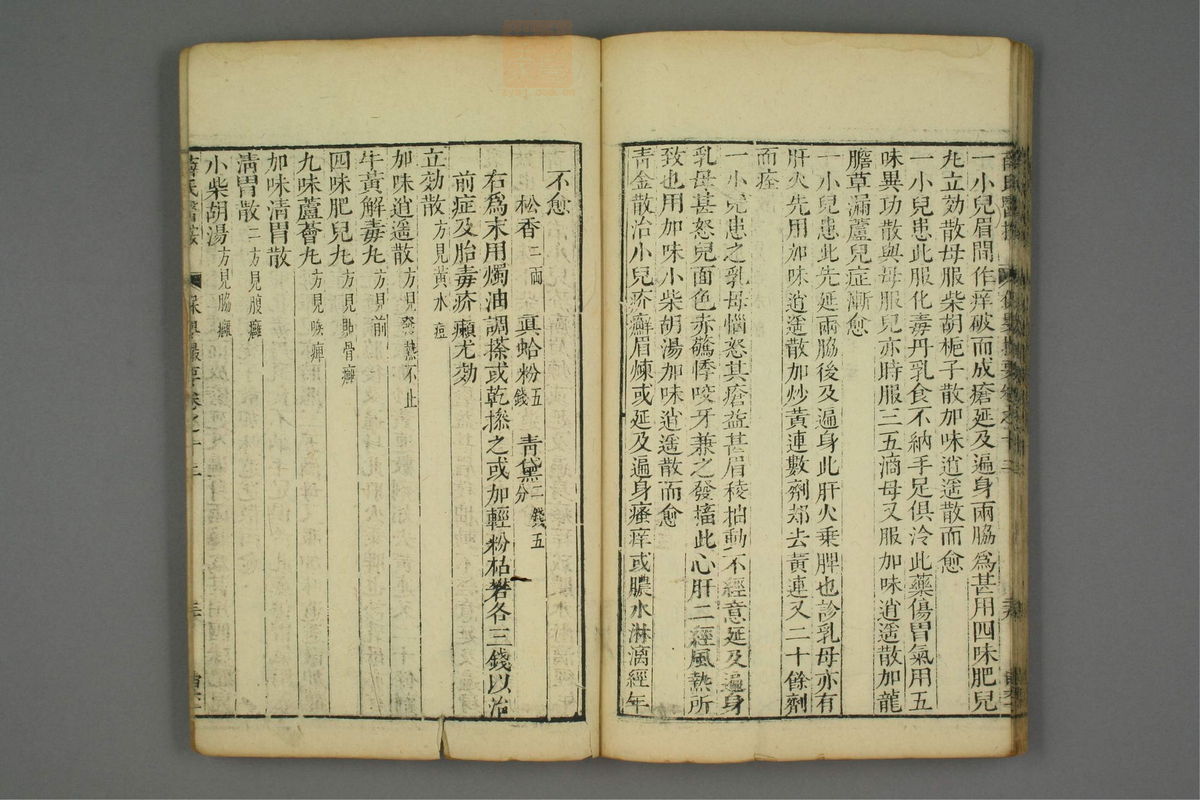 一小兒眉間作痒破而成瘡延及遍身兩脇爲甚用四味肥兒
丸立効散母服柴胡梔子散加味逍遥散而愈
一小兒患此服化毒丹乳食不納手足俱冷此藥傷胃氣用五
味異功散與母服兒亦時服三五滴母又服加味逍遥散加龍
膽草漏蘆兒症漸愈
一小兒患此先延兩脇後及遍身此肝火乘脾也診乳母亦有
肝火先用加味逍遥散加炒黃連數劑却去黃連又二十餘劑
而痊
一小兒患之乳母惱怒其瘡益甚眉稜抽動不經意延及遍身
乳母甚怒兒面色赤驚悸咬牙兼之發搐此心肝二經風熱所
致也用加味小柴胡湯加味逍遥散而愈
青金散治小兒疥癬眉煉或延及遍身瘙痒或膿水淋漓經年
不愈
松香二兩 真蛤粉五錢 青黛二錢五分
右爲末用燭油調搽或乾摻之或加輕粉枯礬各三錢以治
前症及胎毒疥癩尤効
立効散方見黃水瘡
加味逍遥散方見發熱不止
牛黃解毒丸方見前
四味肥兒丸方見貼骨癰
九味蘆薈丸方見喉痺
加味清胃散
清胃散二方見腹癰
小柴胡湯方見脇癰
薛氏醫案 保嬰撮要卷之十二